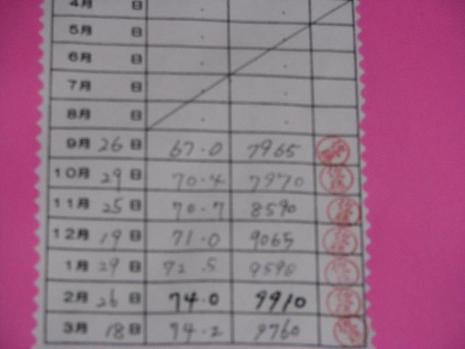 4月 日
5月 日
6月 日
7月 日
8月 日
9月 26 日 67.0 7965
10月 29 日 70.4 7970
11月 25 日 70.7 8590
12月 19 日 71.0 9065
1月 29 日 72.5 9590
2月 26 日 74.0 9910
3月 18 日 74.2 9760